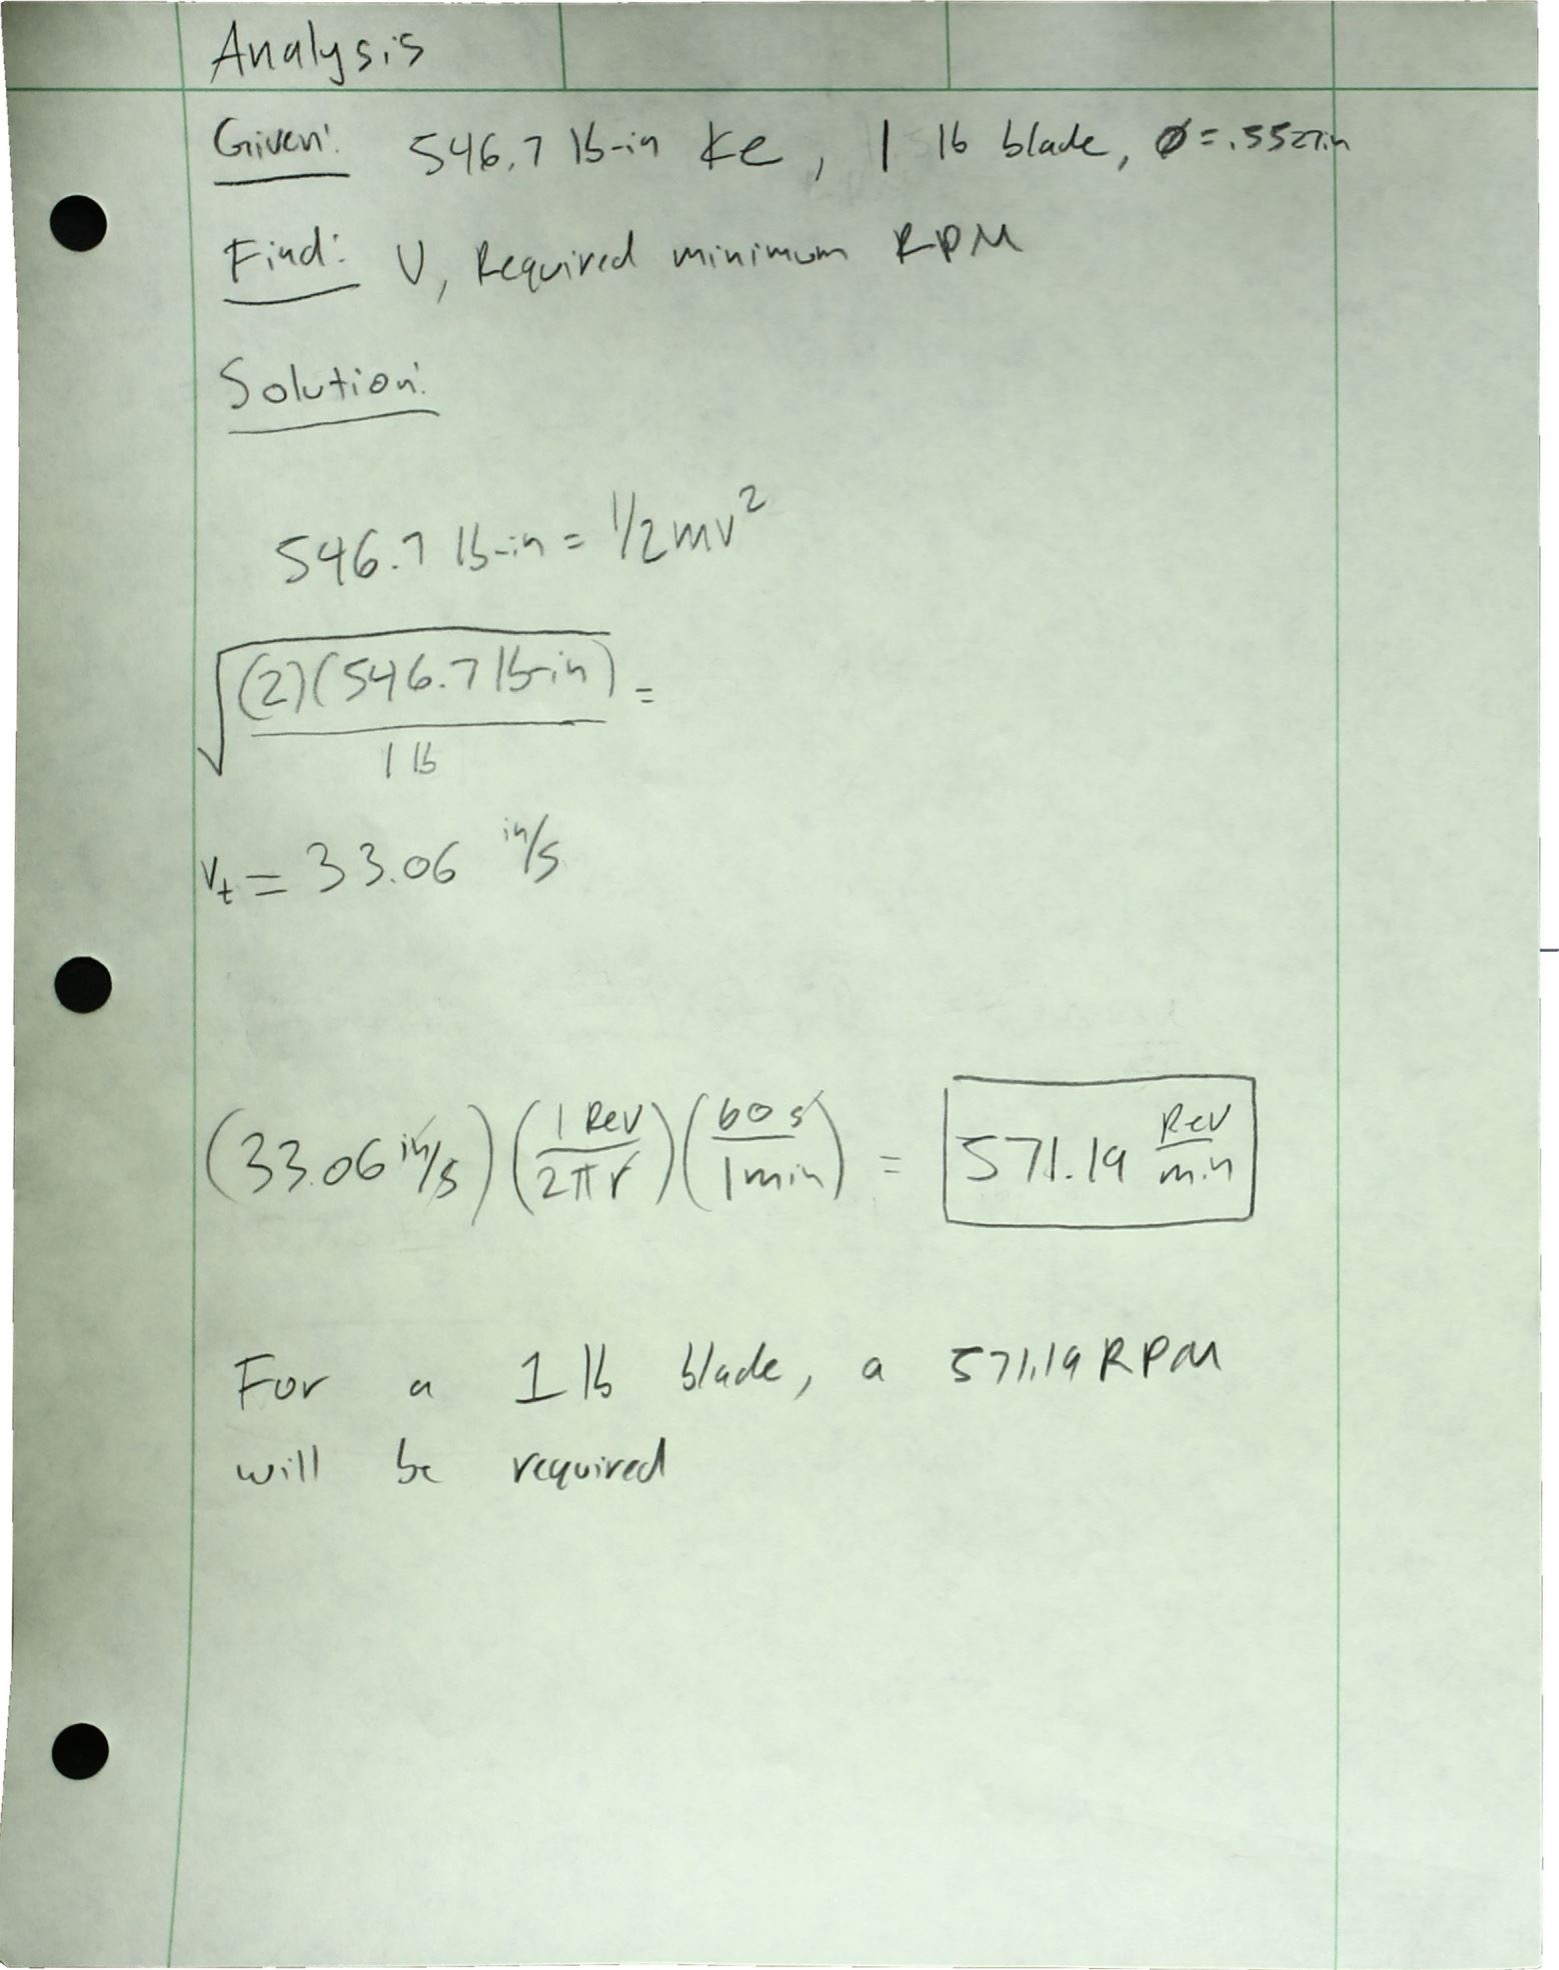 Analysis
Given: 546.7 lb-in Ke, 1 lb blade, Ø=.5527in
Find: V, Required minimum RPM
Solution:
546.7 lb-in = 1/2 mv²
√((2)(546.7 lb-in) / 1 lb) =
Vt = 33.06 in/s
(33.06 in/s)(1 Rev / 2πr)(60 s / 1 min) = 571.19 Rev/min
For a 1 lb blade, a 571.19 RPM
will be required